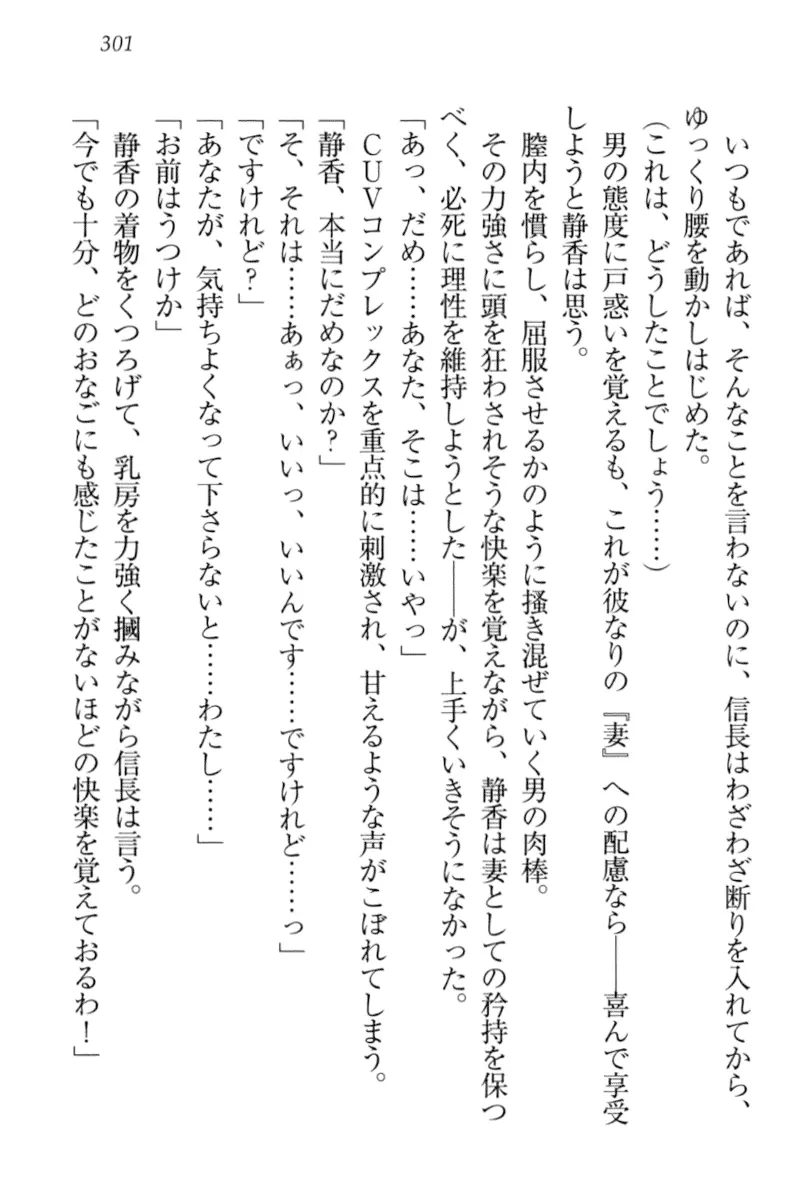 301
いつもであれば、そんなことを言わないのに、信長はわざわざ断りを入れてから、
ゆっくり腰を動かしはじめた。
（これは、どうしたことでしょう……）
男の態度に戸惑いを覚えるも、これが彼なりの『妻』への配慮なら――喜んで享受
しようと静香は思う。
膣内を慣らし、屈服させるかのように掻き混ぜていく男の肉棒。
その力強さに頭を狂わされそうな快楽を覚えながら、静香は妻としての矜持を保つ
べく、必死に理性を維持しようとした――が、上手くいきそうになかった。
「あっ、だめ……あなた、そこは……いやっ」
CUVコンプレックスを重点的に刺激され、甘えるような声がこぼれてしまう。
「静香、本当にだめなのか？」
「そ、それは……あぁっ、いいっ、いいんです……ですけれど……っ」
「ですけれど？」
「あなたが、気持ちよくなって下さらないと……わたし……」
「お前はうつけか」
静香の着物をくつろげて、乳房を力強く摑みながら信長は言う。
「今でも十分、どのおなごにも感じたことがないほどの快楽を覚えておるわ！」